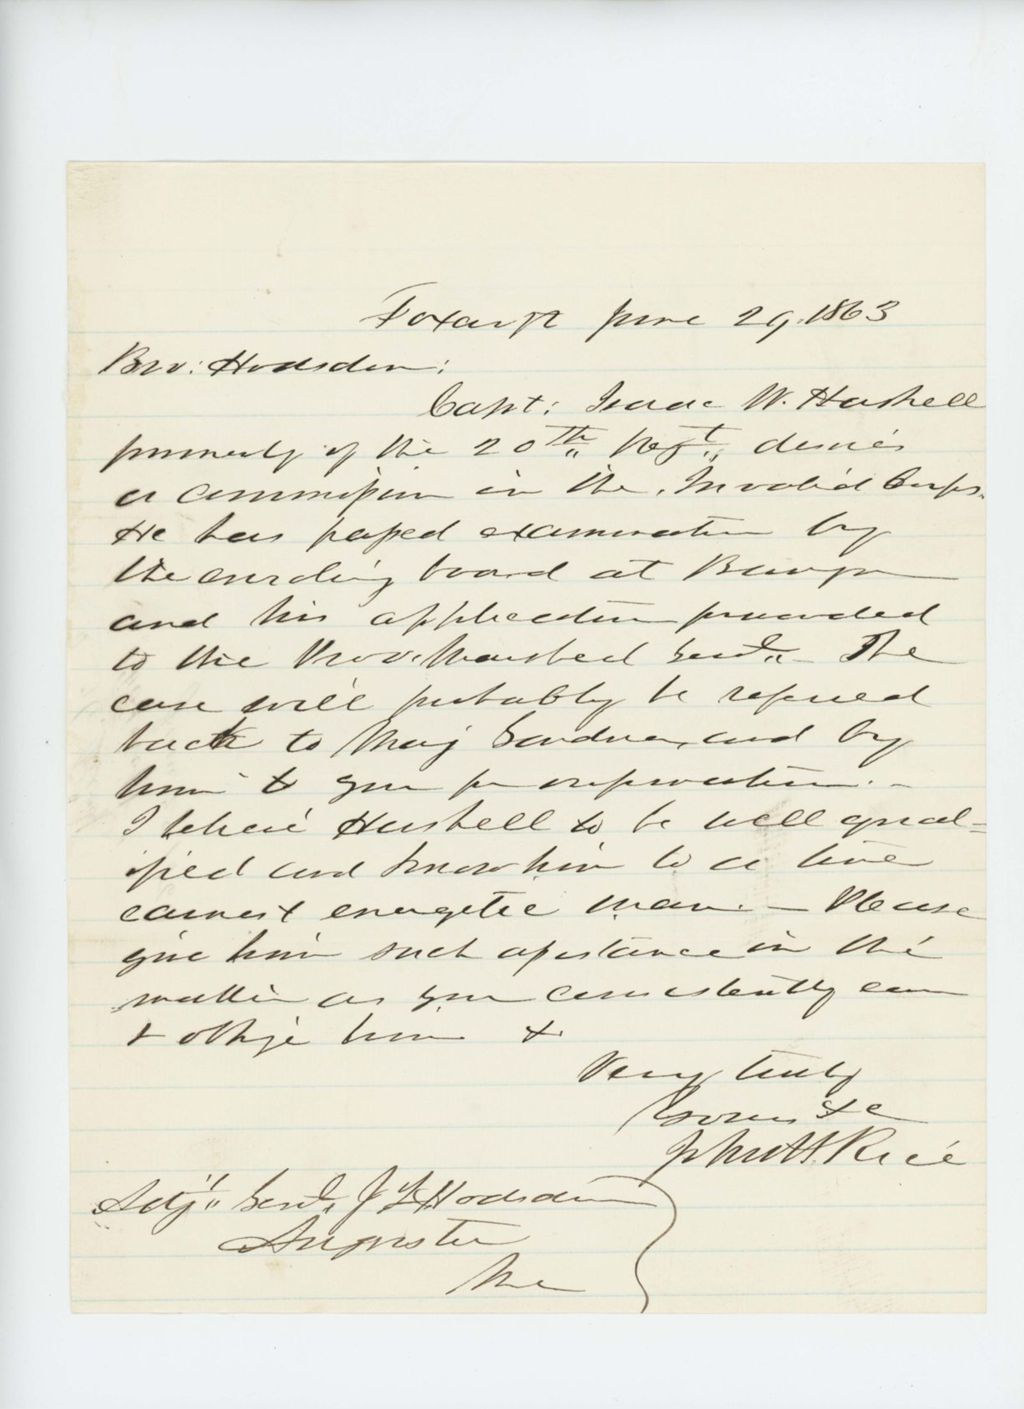 Foxcroft June 29. 1863
Bro: Hodsdon:
Capt: Isaac W. Haskell
formerly of the 20th Regt, desires
a commission in the Invalid Corps.
He has passed examination by
the enroling board at Bangor
and his application forwarded
to the Prov. Marshal Genl. The
case will probably be referred
back to Maj Gardner, and by
him to you for
I believe Haskell to be well qual=
ified and know him to a live
earnest energetic man. — Please
give him such assistance in the
matter as you consistently can
& oblige him &.
Very truly
Yours &c
John H. Rice
Adjt Genl J L Hodsdon
Augusta
Me